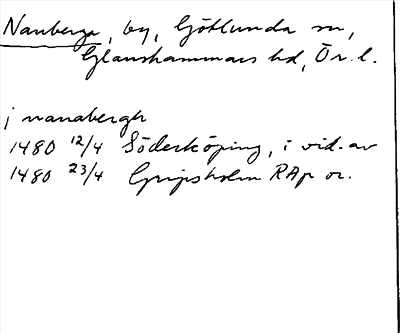 Nanberga, by, Götlunda sn,
Glanshammars hd, Ör. l.
j nanabergh
1480 12/4 Söderköping, i vid. av
1480 23/4 Gripsholm RAp or.